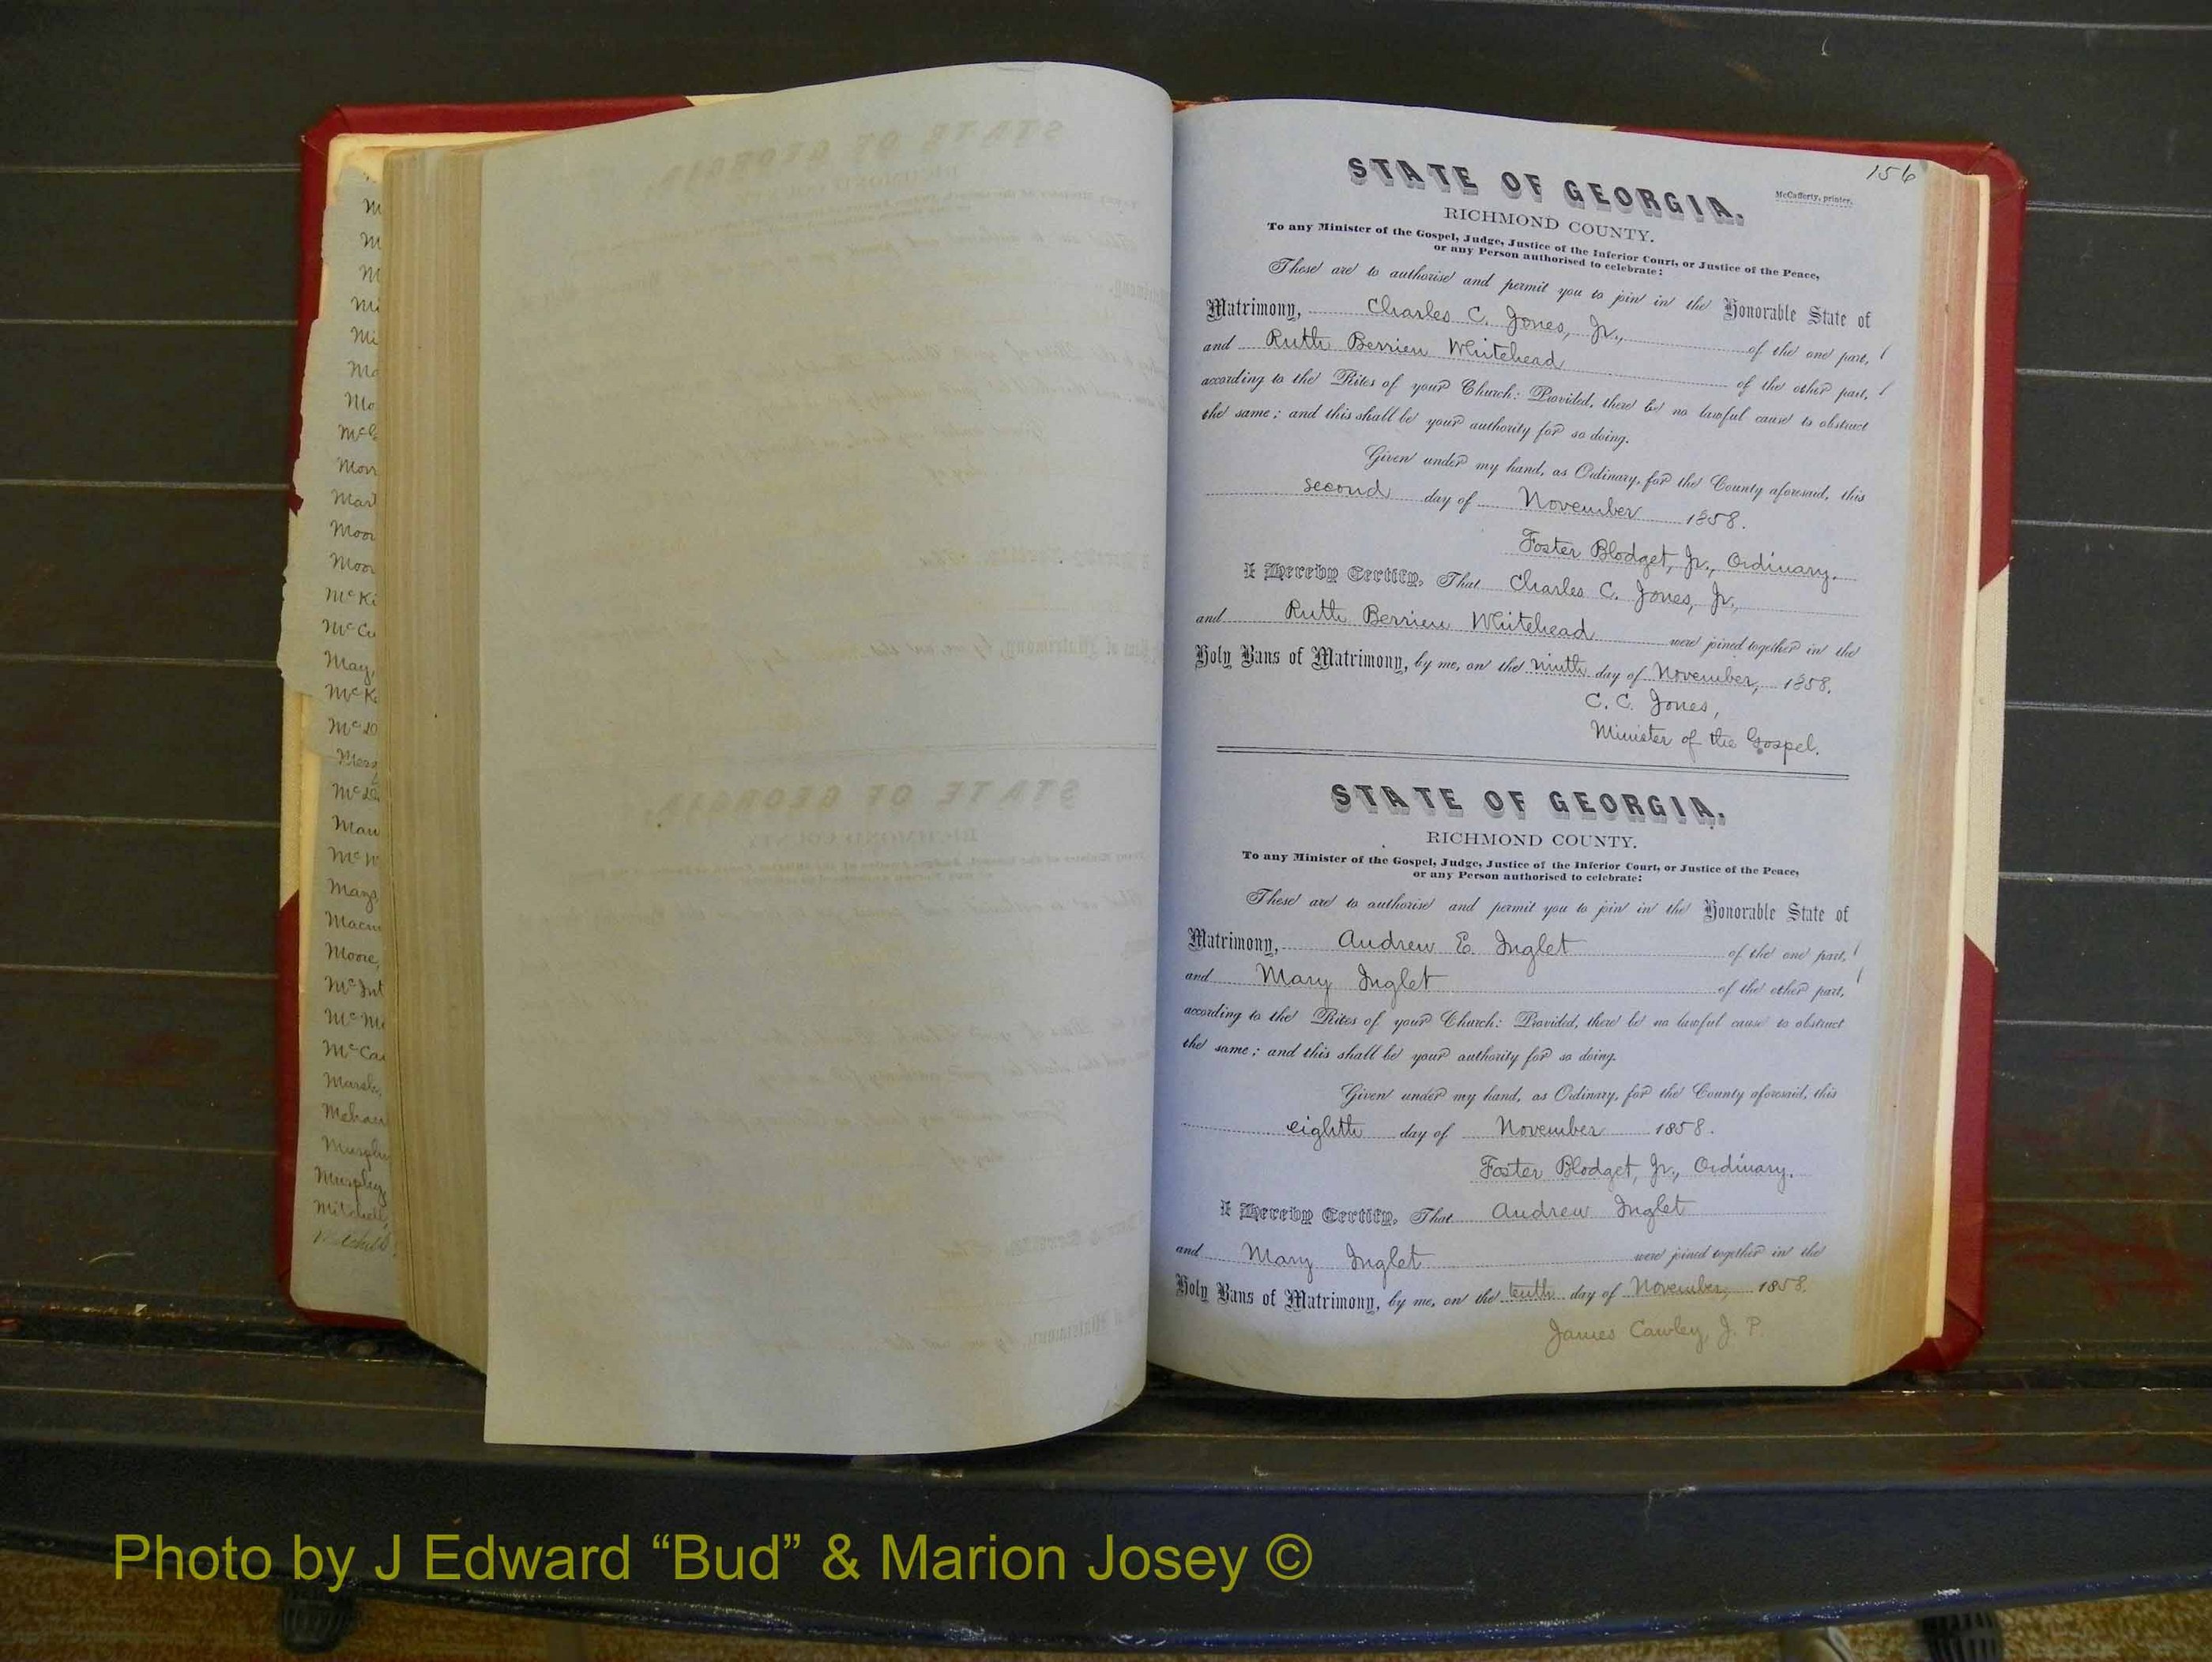 156
McCafferty, printer.
STATE OF GEORGIA.
RICHMOND COUNTY.
To any Minister of the Gospel, Judge, Justice of the Inferior Court, or Justice of the Peace,
or any Person authorised to celebrate:
These are to authorise and permit you to join in the Honorable State of
Matrimony, Charles C. Jones, Jr., of the one part,
and Ruth Berrien Whitehead of the other part,
according to the Rites of your Church: Provided, there be no lawful cause to obstruct
the same; and this shall be your authority for so doing.
Given under my hand, as Ordinary, for the County aforesaid, this
second day of November 1858.
Foster Blodget, Jr., Ordinary.
I Hereby Certify, That Charles C. Jones, Jr.,
and Ruth Berrien Whitehead were joined together in the
Holy Bans of Matrimony, by me, on the ninth day of November, 1858.
C. C. Jones,
Minister of the Gospel.
STATE OF GEORGIA.
RICHMOND COUNTY.
To any Minister of the Gospel, Judge, Justice of the Inferior Court, or Justice of the Peace,
or any Person authorised to celebrate:
These are to authorise and permit you to join in the Honorable State of
Matrimony, Andrew E. Inglet of the one part,
and Mary Inglet of the other part,
according to the Rites of your Church: Provided, there be no lawful cause to obstruct
the same; and this shall be your authority for so doing.
Given under my hand, as Ordinary, for the County aforesaid, this
eighth day of November 1858.
Foster Blodget, Jr., Ordinary.
I Hereby Certify, That Andrew Inglet
and Mary Inglet were joined together in the
Holy Bans of Matrimony, by me, on the tenth day of November, 1858.
James Cawley, J. P.
Photo by J Edward “Bud” & Marion Josey ©